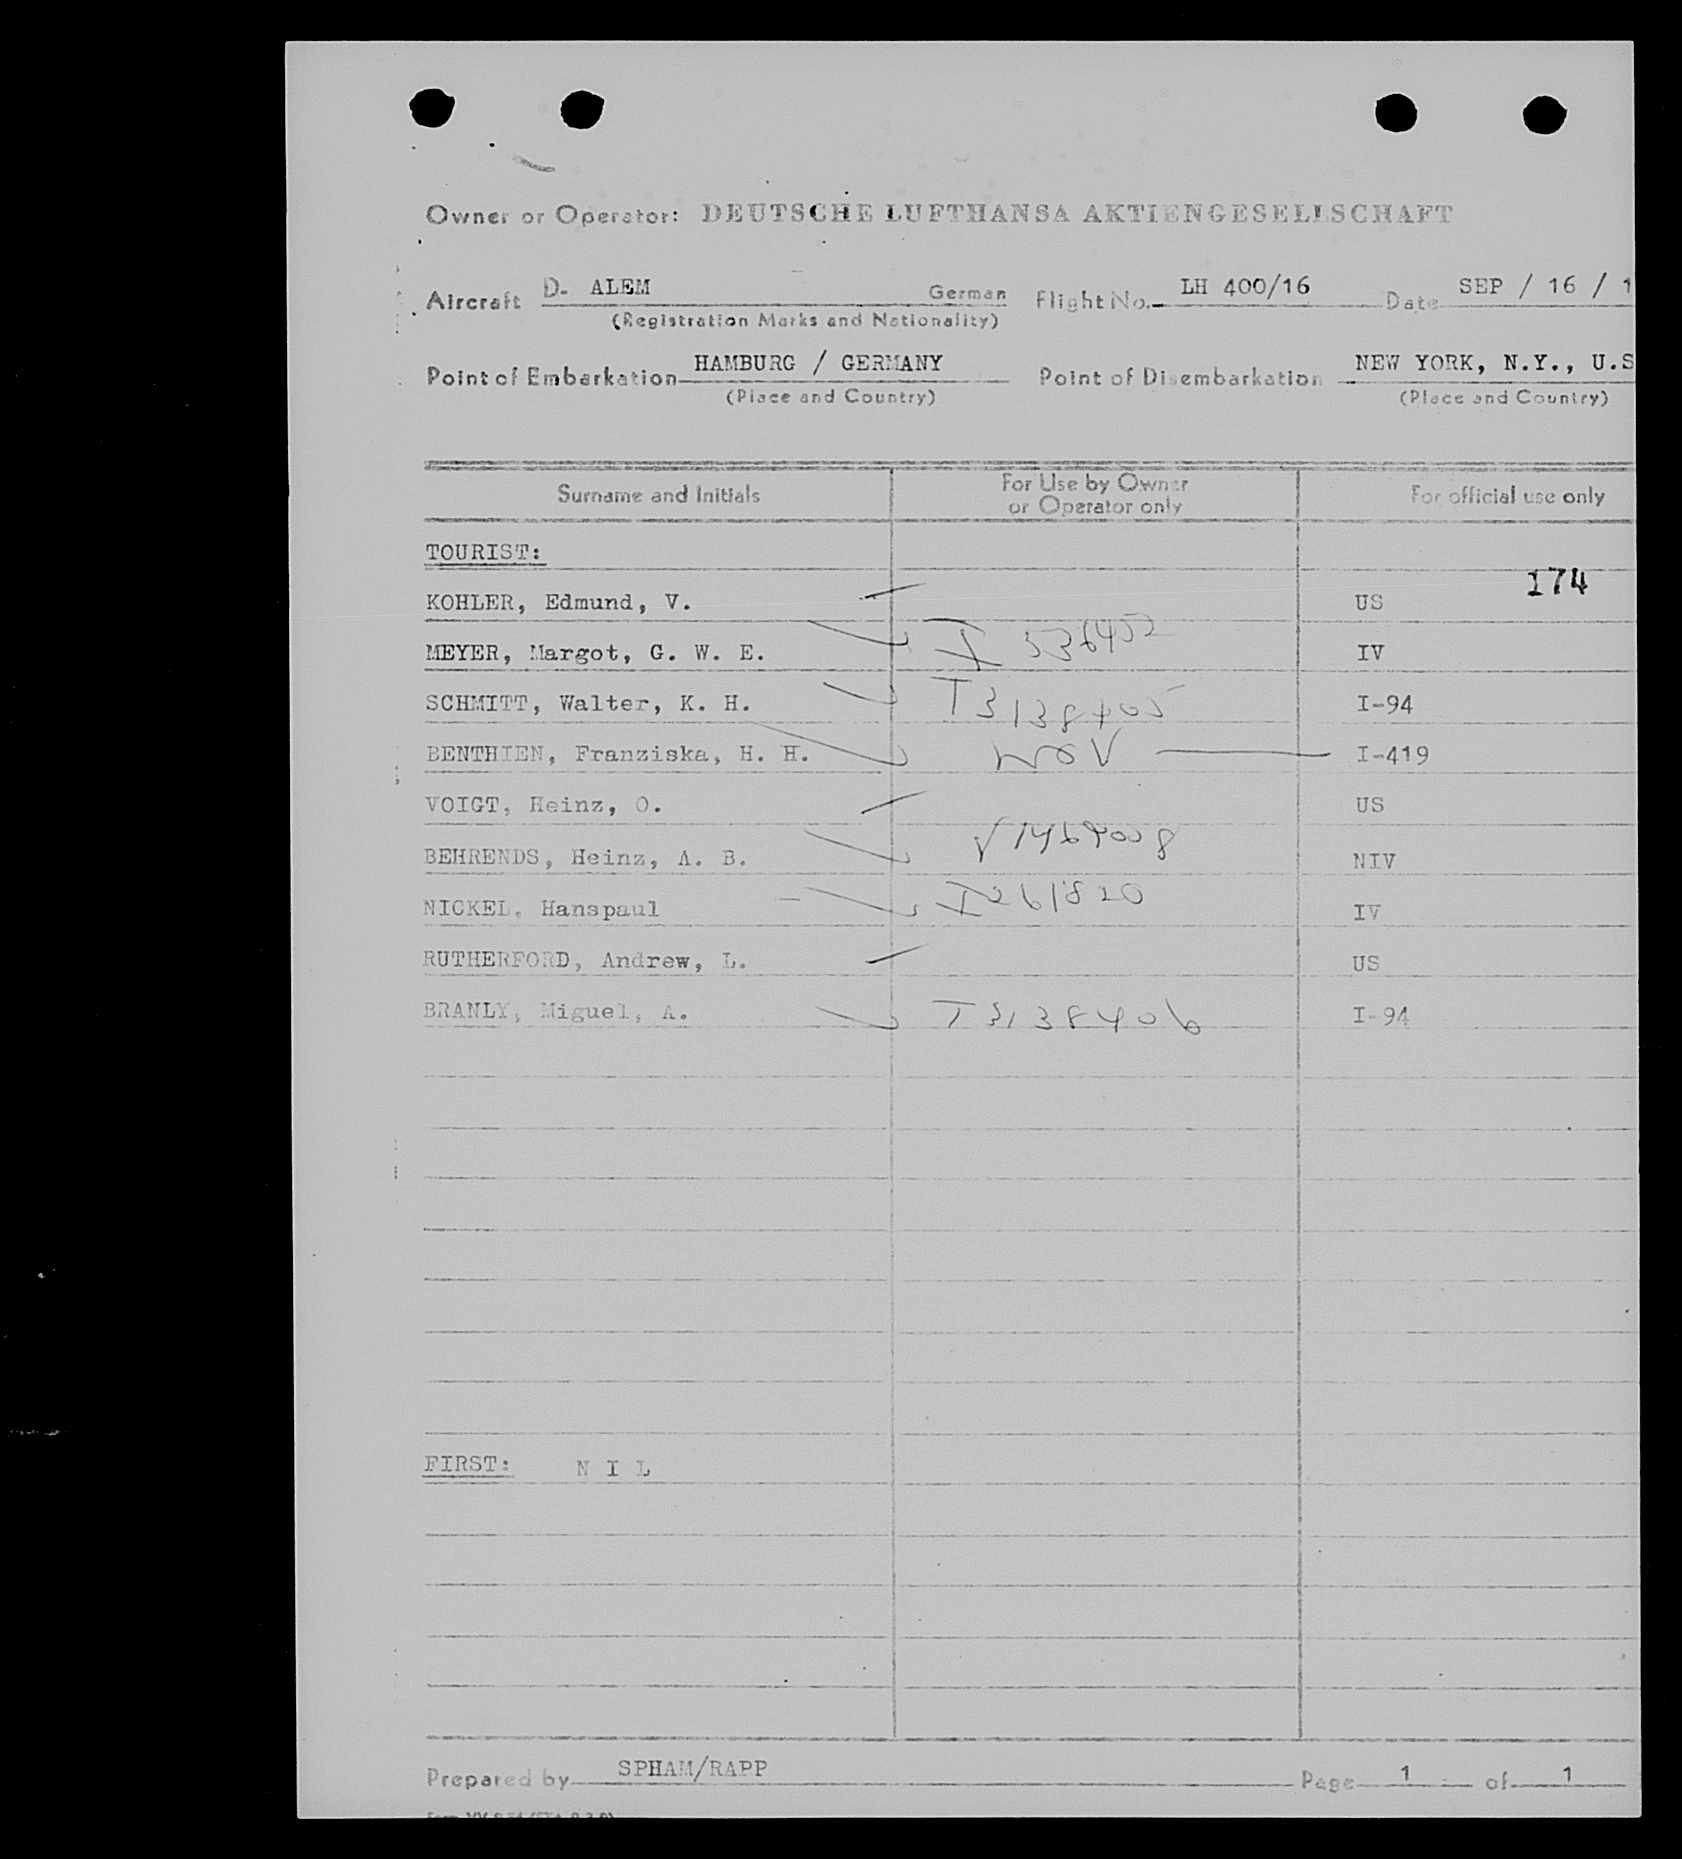 Owner or Operator: DEUTSCHE LUFTHANSA AKTIENGESELLSCHAFT
Aircraft D- ALEM German Flight No. LH 400/16 Date SEP / 16 / 1
(Registration Marks and Nationality)
Point of Embarkation HAMBURG / GERMANY Point of Disembarkation NEW YORK, N.Y., U.S
(Place and Country) (Place and Country)
Surname and Initials For Use by Owner or Operator only For official use only
TOURIST:
174
KOHLER, Edmund, V. US
MEYER, Margot, G. W. E. IV
SCHMITT, Walter, K. H. T3138405 I-94
BENTHIEN, Franziska, H. H. I-419
VOIGT, Heinz, O. US
BEHRENDS, Heinz, A. B. NIV
NICKEL, Hanspaul I261820 IV
RUTHERFORD, Andrew, L. US
BRANLY, Miguel, A. T3138406 I-94
FIRST: N I L
Prepared by SPHAM/RAPP Page 1 of 1